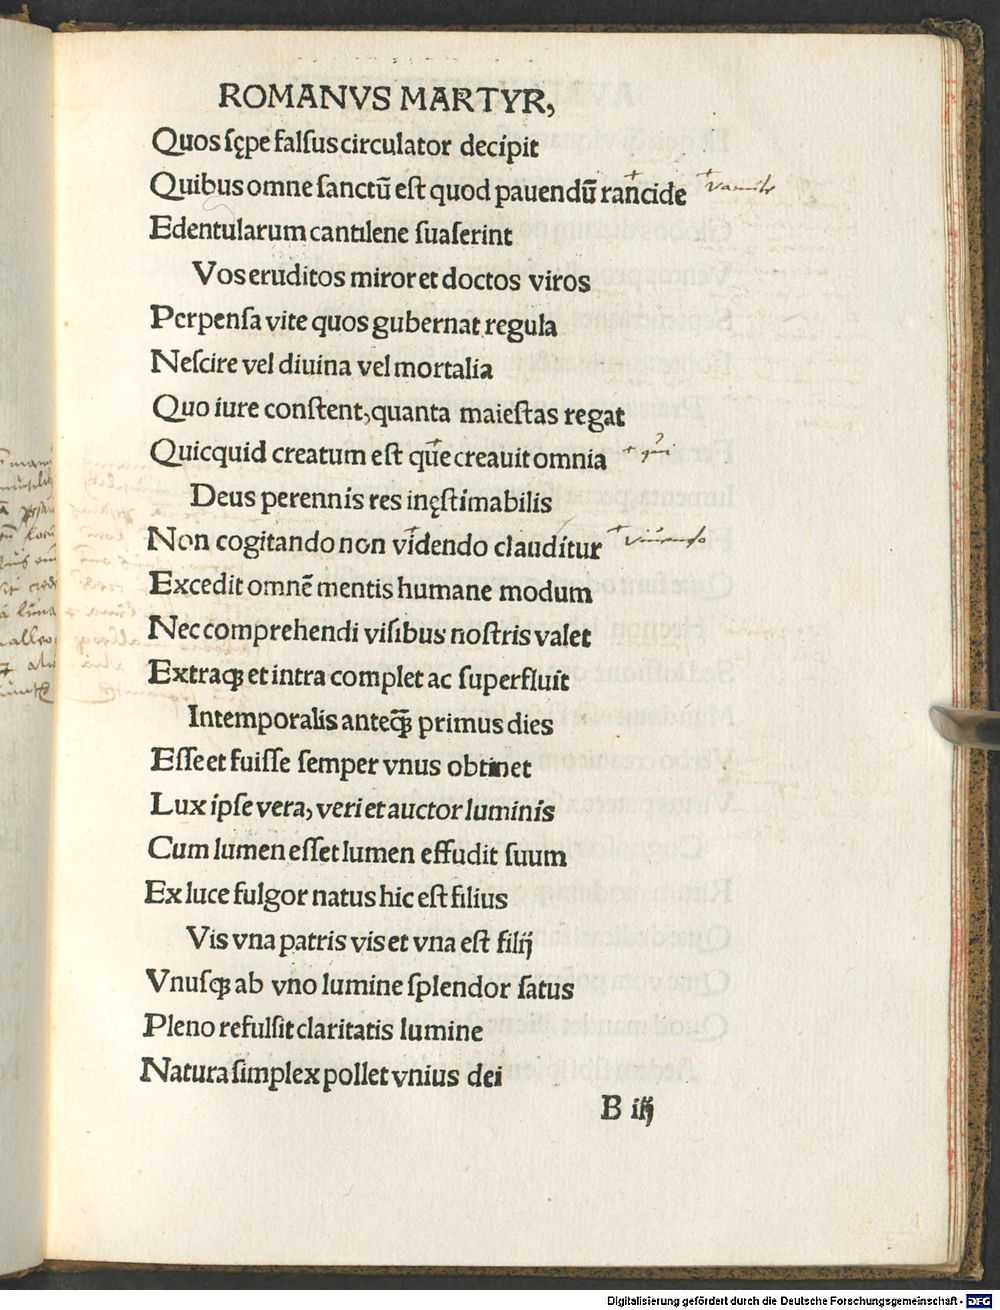 ROMANVS MARTYR,
Quos sępe falsus circulator decipit
Quibus omne sanctū est quod pauendū rancide
Edentularum cantilene suaserint
Vos eruditos miror et doctos viros
Perpensa vite quos gubernat regula
Nescire vel diuina vel mortalia
Quo iure constent, quanta maiestas regat
Quicquid creatum est qūe creauit omnia
Deus perennis res inęstimabilis
Non cogitando non videndo clauditur
Excedit omnē mentis humane modum
Nec comprehendi visibus nostris valet
Extraqꝫ et intra complet ac superfluit
Intemporalis anteqꝫ̄ primus dies
Esse et fuisse semper vnus obtinet
Lux ipse vera, veri et auctor luminis
Cum lumen esset lumen effudit suum
Ex luce fulgor natus hic est filius
Vis vna patris vis et vna est filij
Vnusqꝫ ab vno lumine splendor satus
Pleno refulsit claritatis lumine
Natura simplex pollet vnius dei
B iij
Digitalisierung gefördert durch die Deutsche Forschungsgemeinschaft - DFG